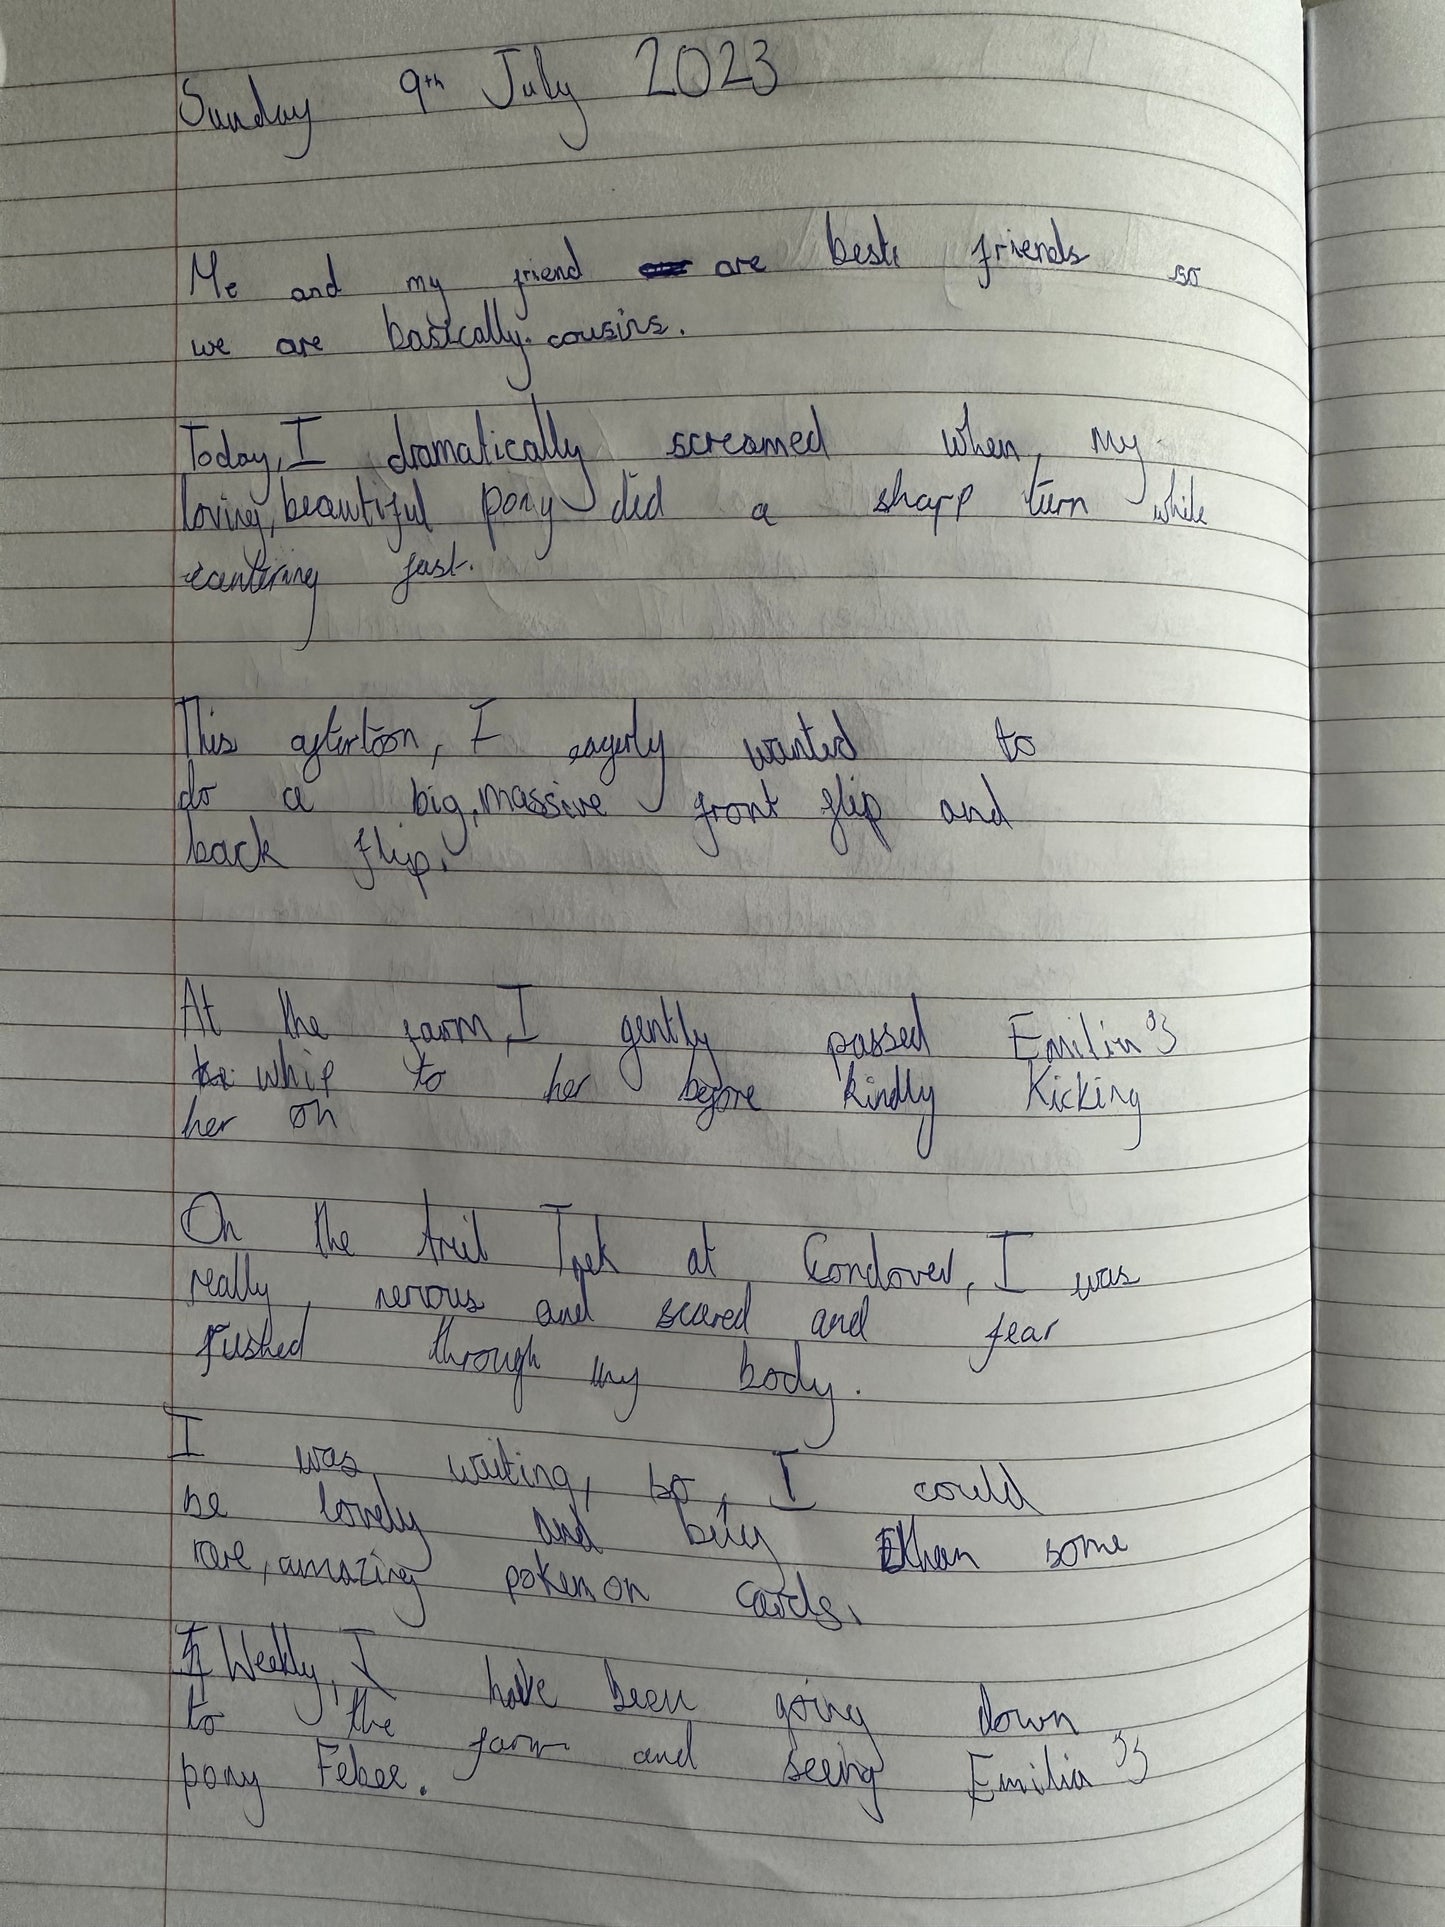 Sunday 9th July 2023
Me and my friend are best friends so
we are basically cousins.
Today, I dramatically screamed when, my
loving, beautiful pony did a sharp turn while
cantering fast.
This aftertoon, I eagerly wanted to
do a big, massive front flip and
back flip.
At the farm, I gently passed Emilia's
whip to her before kindly kicking
her on
On the at Condover, I was
really, nervous and scared and fear
rushed through my body.
I was, waiting, so, I could
be lovely and buy some
rare, amazing pokemon cards.
Weekly, I have been going down
to the farm and seeing Emilia's
pony Febee.